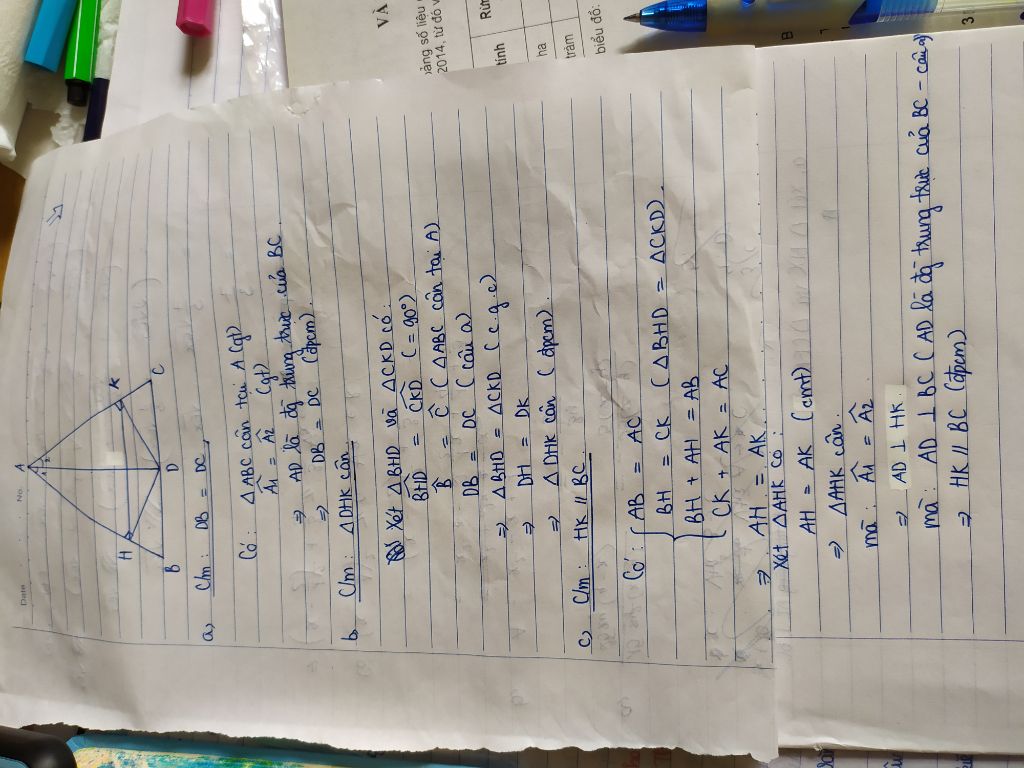 Date No.
A
H
K
B
D
C
a, C/m : DB = DC
Có : △ABC cân tại A (gt)
Â1 = Â2 (gt)
⇒ AD là đg trung trực của BC
⇒ DB = DC (đpcm).
b, C/m : △DHK cân
Xét △BHD và △CKD có:
BHD = CKD (= 90°)
B̂ = Ĉ ( △ABC cân tại A)
DB = DC ( câu a)
⇒ △BHD = △CKD ( c . g . c)
⇒ DH = DK
⇒ △DHK cân ( đpcm)
c, C/m : HK // BC
Có : AB = AC
BH = CK ( △BHD = △CKD)
BH + AH = AB
CK + AK = AC
⇒ AH = AK
Xét △AHK có:
AH = AK (cmt)
⇒ △AHK cân.
mà : Â1 = Â2
⇒ AD ⊥ HK.
mà : AD ⊥ BC ( AD là đg trung trực của BC - câu a)
⇒ HK // BC (đpcm)
VÀ
bảng số liệu
2014, từ đó v
tính
Rừn
ha
trăm
biểu đồ:
B
7
31